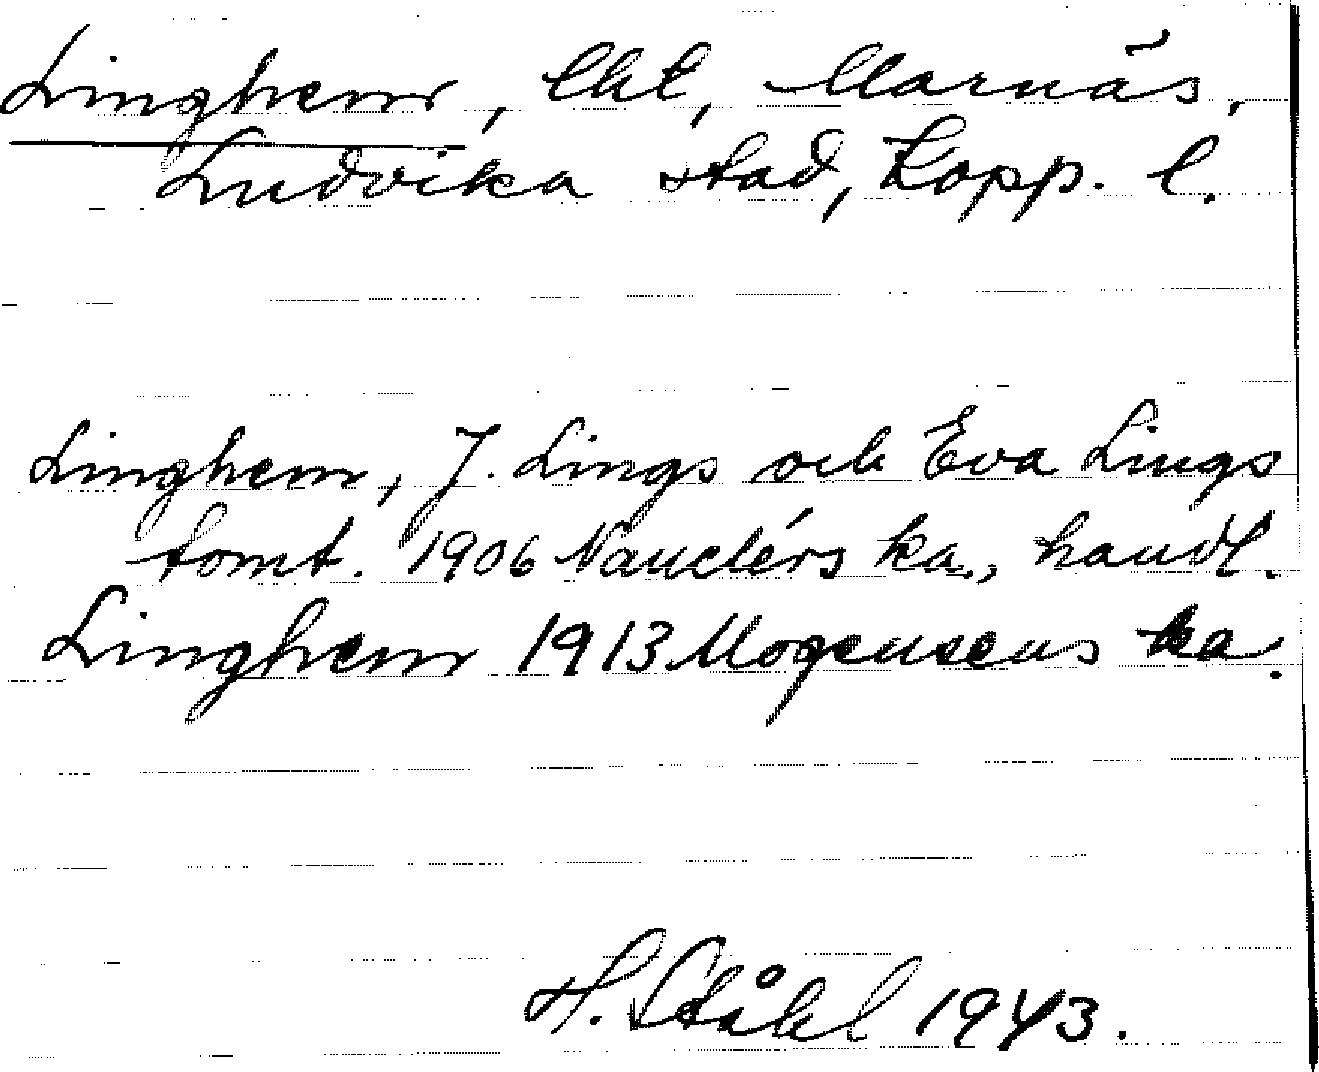 Linghem, lht, Marnäs,
Ludvika stad, Kopp. l.
Linghem, J. Lings och Eva Lings
tomt. 1906 Nauclérs ka., handl.
Linghem 1913 Mogensens ka.
H. Ståhl 1943.